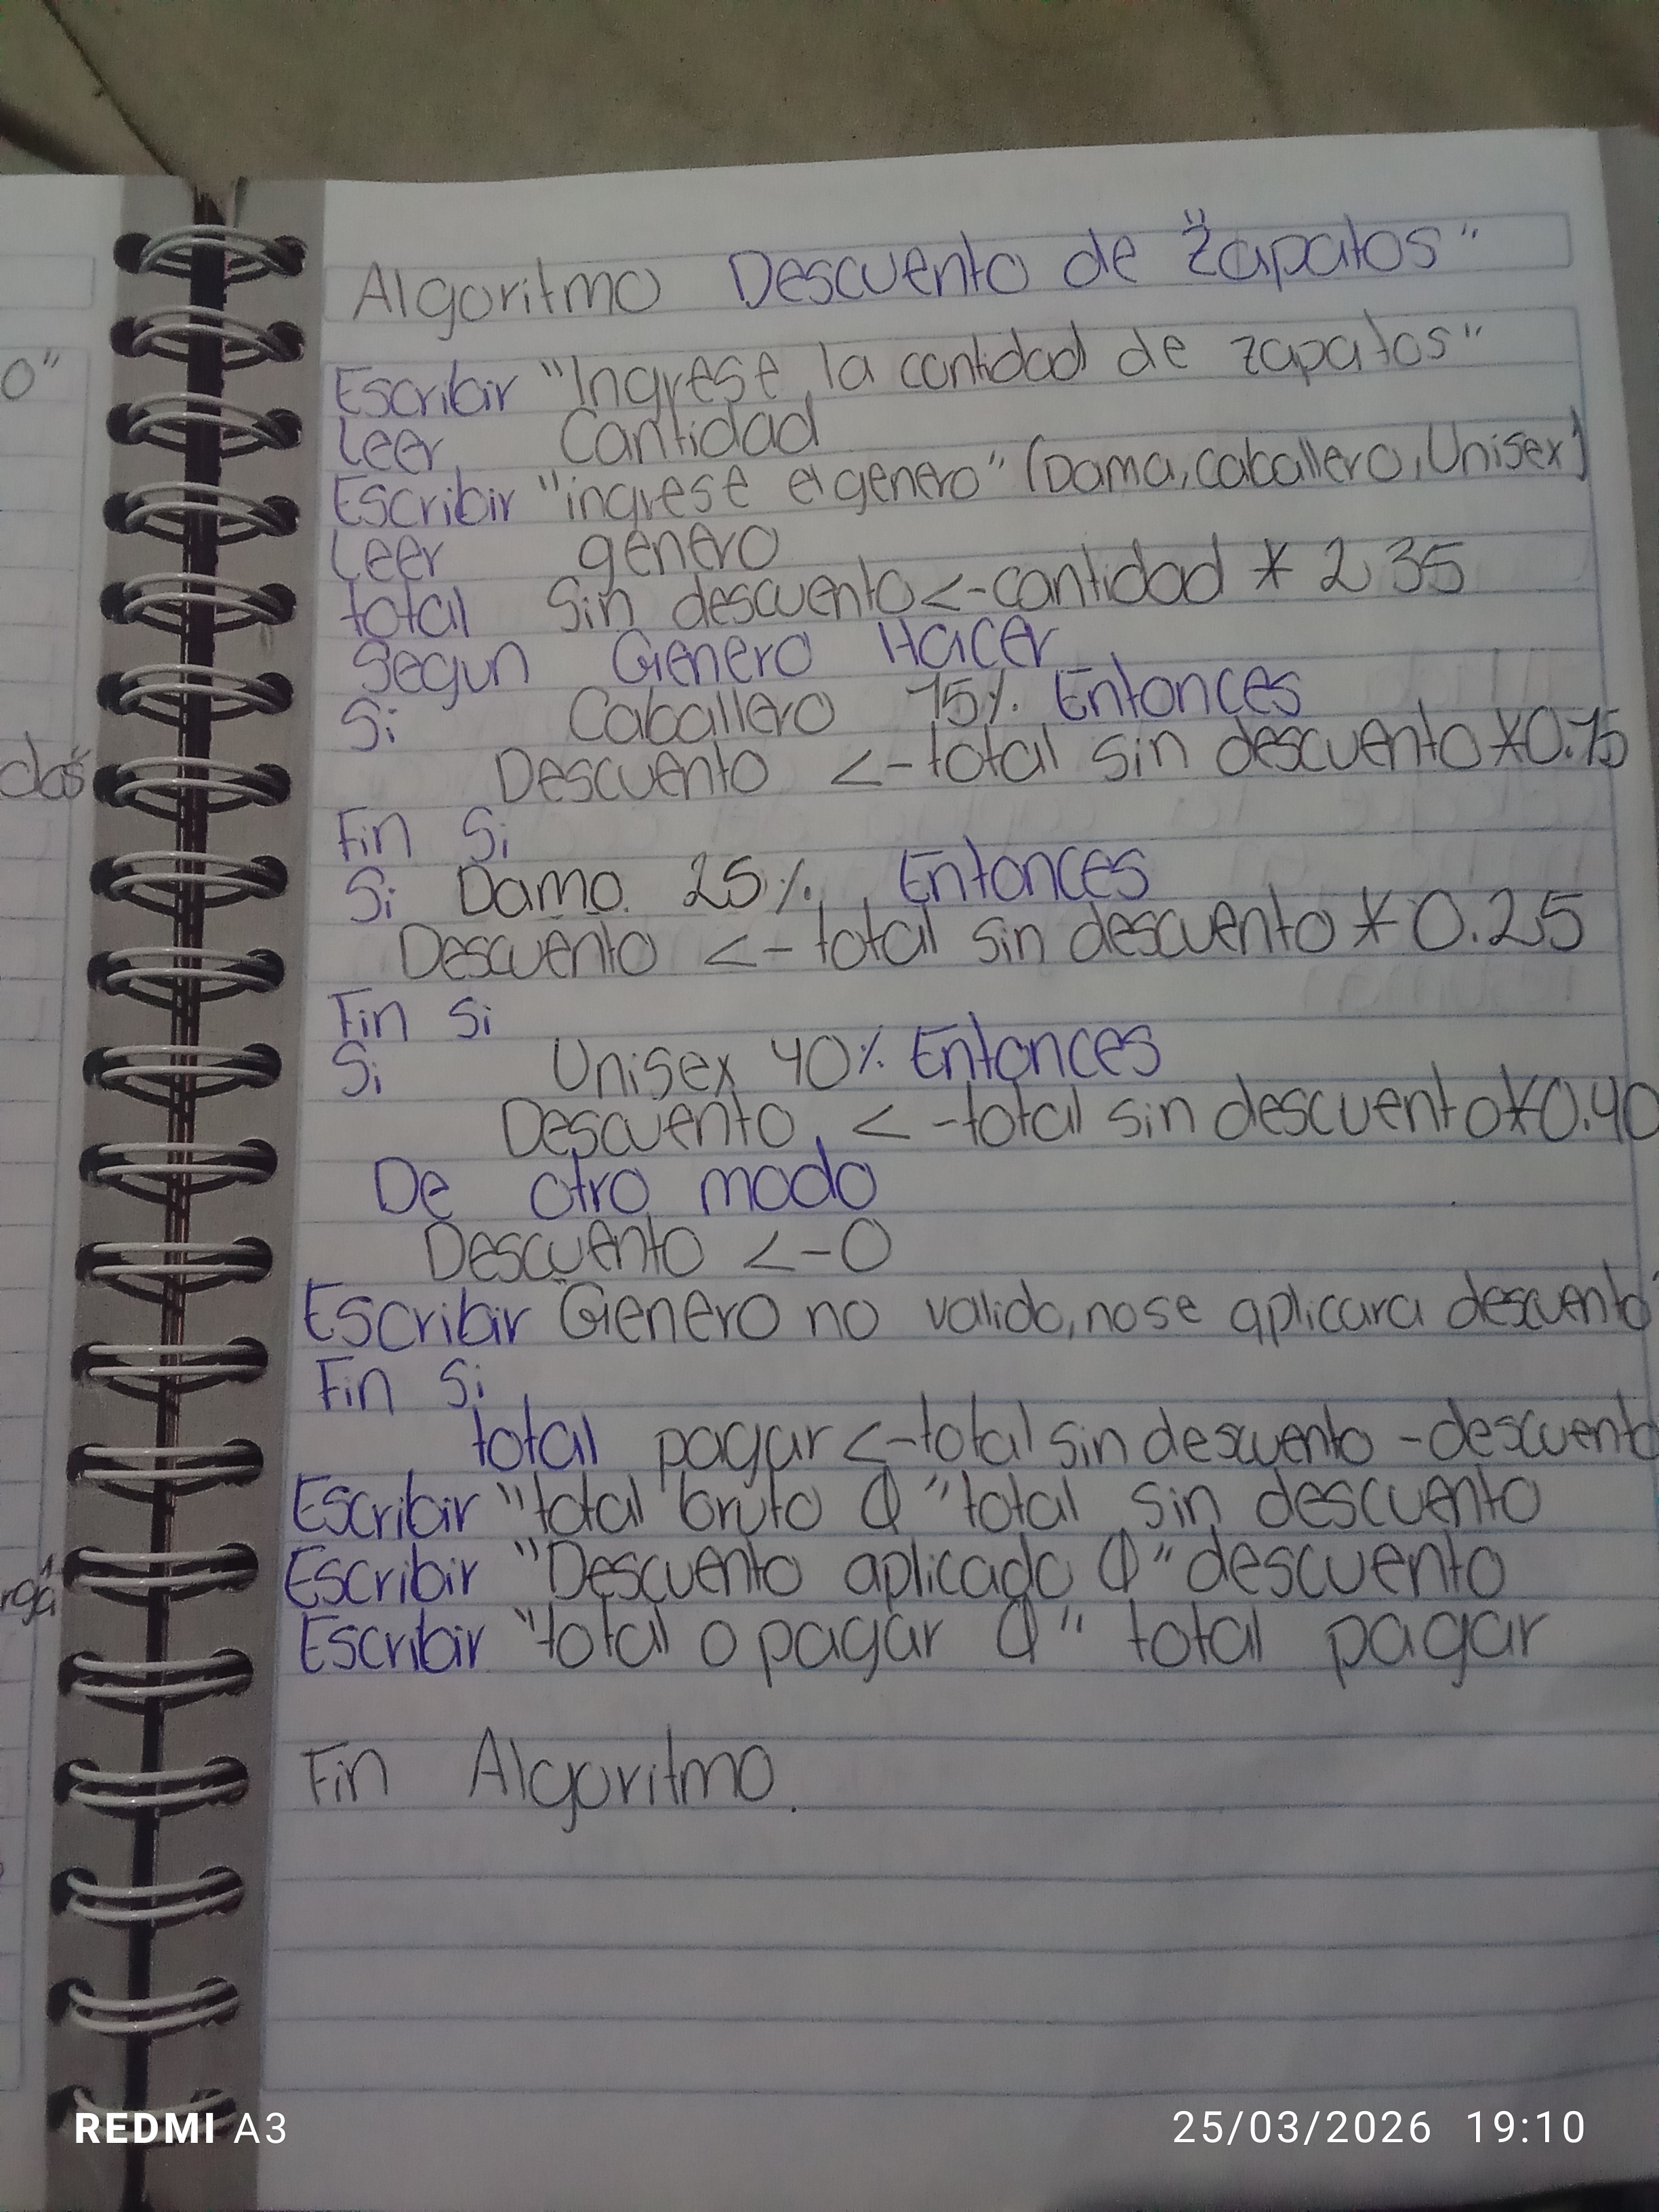 Algoritmo Descuento de "Zapatos"
Escribir "Ingrese la cantidad de zapatos"
Leer Cantidad
Escribir "ingrese el genero" (Dama, caballero, Unisex)
Leer genero
total Sin descuento <- cantidad * 235
Segun Genero Hacer
Si Caballero 15% Entonces
Descuento <- total sin descuento * 0.15
Fin Si
Si Dama 25% Entonces
Descuento <- total sin descuento * 0.25
Fin si
Si Unisex 40% Entonces
Descuento <- total sin descuento * 0.40
De otro modo
Descuento <- 0
Escribir "Genero no valido, no se aplicara descuento"
Fin Si
total pagar <- total sin descuento - descuento
Escribir "total bruto Q" total sin descuento
Escribir "Descuento aplicado Q" descuento
Escribir "total o pagar Q" total pagar
Fin Algoritmo.
o"
das
rga
REDMI A3
25/03/2026 19:10